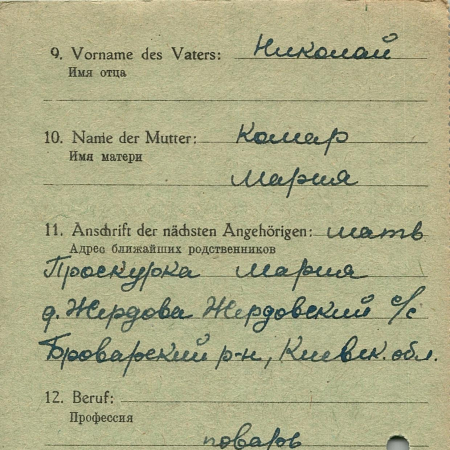 9. Vorname des Vaters: Николай
Имя отца
10. Name der Mutter: Комар
Имя матери
Мария
11. Anschrift der nächsten Angehörigen: мать
Адрес ближайших родственников
Проскурка Мария
д. Жердова Жердовский с/с
Броварский р-н, Киевск. обл.
12. Beruf:
Профессия
поваръ